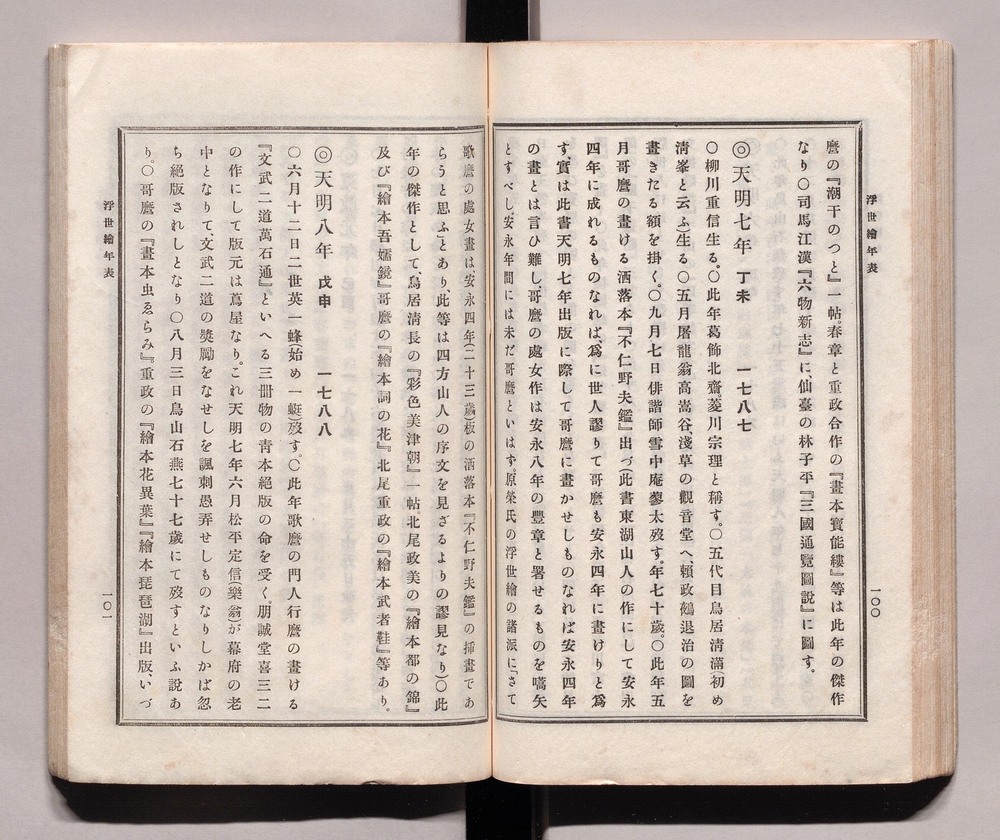 浮世繪年表
一〇〇
麿の『潮干のつと』一帖春章と重政合作の『畫本寳能縷』等は此年の傑作
なり〇司馬江漢『六物新志』に、仙臺の林子平『三國通覽圖説』に圖す。
◎天明七年 丁未 一七八七
〇柳川重信生る。〇此年葛飾北齋、菱川宗理と稱す。〇五代目鳥居清滿初め
清峯と云ふ生る〇五月屠龍翁高嵩谷、淺草の觀音堂へ、頼政鵺退治の圖を
畫きたる額を掛く。〇九月七日俳諧師雪中庵蓼太歿す。年七十歳。〇此年五
月哥麿の畫ける洒落本『不仁野夫鑑』出づ、此書東湖山人の作にして安永
四年に成れるものなれば、爲に世人謬りて哥麿も安永四年に畫けりと爲
す、實は此書天明七年出版に際して哥麿に畫かせしものなれば安永四年
の畫とは言ひ難し、哥麿の處女作は安永八年の豐章と署せるものを嚆矢
とすべし、安永年間には未だ哥麿といはず。原榮氏の浮世繪の諸派に「さて
歌麿の處女畫は、安永四年(二十三歳)板の洒落本『不仁野夫鑑』の挿畫であ
らうと思ふ」とあり、此等は四方山人の序文を見ざるよりの謬見なり)〇此
年の傑作として、鳥居清長の『彩色美津朝』一帖、北尾政美の『繪本都の錦』
及び『繪本吾嬬鏡』哥麿の『繪本詞の花』北尾重政の『繪本武者鞋』等あり。
◎天明八年 戊申 一七八八
〇六月十二日二世英一蜂(始め一蜓)歿す。〇此年歌麿の門人行麿の畫ける
『文武二道萬石通』といへる三冊物の青本絕版の命を受く、朋誠堂喜三二
の作にして版元は蔦屋なり。これ天明七年六月松平定信(樂翁)が幕府の老
中となりて、文武二道の奬勵をなせしを諷刺愚弄せしものなりしかば忽
ち絕版されしとなり〇八月三日鳥山石燕七十七歳にて歿すといふ説あ
り。〇哥麿の『畫本虫ゑらみ』重政の『繪本花異葉』『繪本琵琶湖』出版、いづ
浮世繪年表
一〇一